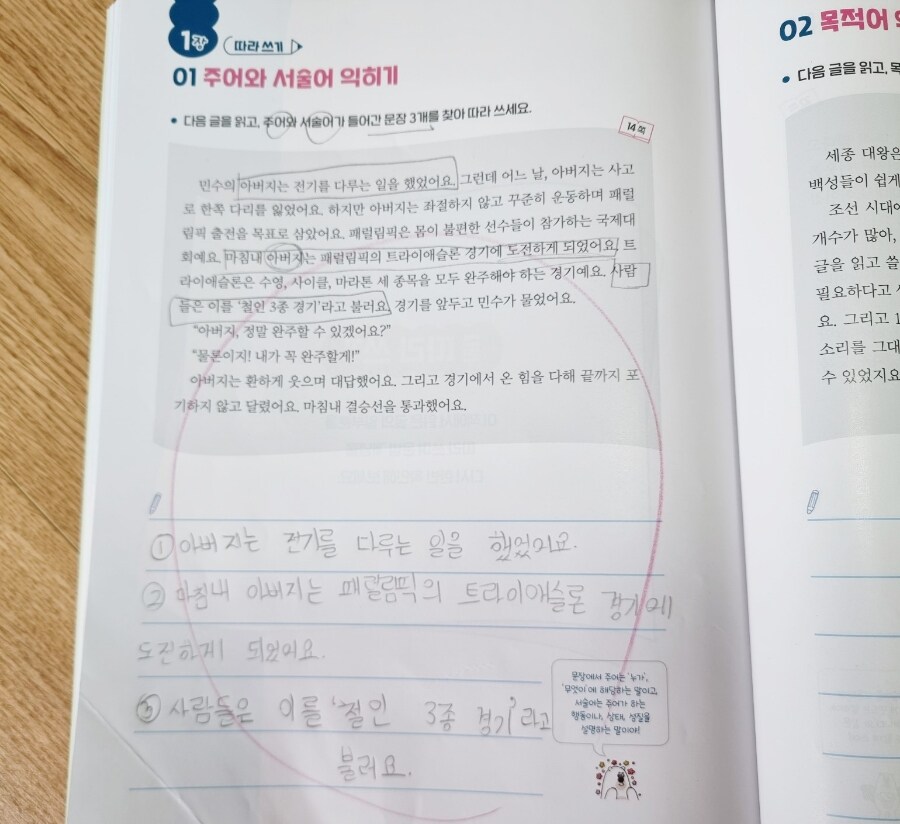 1장 따라 쓰기
01 주어와 서술어 익히기
• 다음 글을 읽고, 주어와 서술어가 들어간 문장 3개를 찾아 따라 쓰세요.
14쪽
민수의 아버지는 전기를 다루는 일을 했었어요. 그런데 어느 날, 아버지는 사고
로 한쪽 다리를 잃었어요. 하지만 아버지는 좌절하지 않고 꾸준히 운동하며 패럴
림픽 출전을 목표로 삼았어요. 패럴림픽은 몸이 불편한 선수들이 참가하는 국제대
회예요. 마침내 아버지는 패럴림픽의 트라이애슬론 경기에 도전하게 되었어요. 트
라이애슬론은 수영, 사이클, 마라톤 세 종목을 모두 완주해야 하는 경기예요. 사람
들은 이를 ‘철인 3종 경기’라고 불러요. 경기를 앞두고 민수가 물었어요.
“아버지, 정말 완주할 수 있겠어요?”
“물론이지! 내가 꼭 완주할게!”
아버지는 환하게 웃으며 대답했어요. 그리고 경기에서 온 힘을 다해 끝까지 포
기하지 않고 달렸어요. 마침내 결승선을 통과했어요.
① 아버지는 전기를 다루는 일을 했었어요.
② 마침내 아버지는 패럴림픽의 트라이애슬론 경기에
도전하게 되었어요.
③ 사람들은 이를 ‘철인 3종 경기’라고
불러요.
문장에서 주어는 ‘누가’,
‘무엇이’에 해당하는 말이고,
서술어는 주어가 하는
행동이나, 상태, 성질을
설명하는 말이야!
02 목적어
• 다음 글을 읽고,
세종 대왕은
백성들이 쉽게
조선 시대에
개수가 많아,
글을 읽고 쓸
필요하다고
요. 그리고 1
소리를 그대
수 있었지요